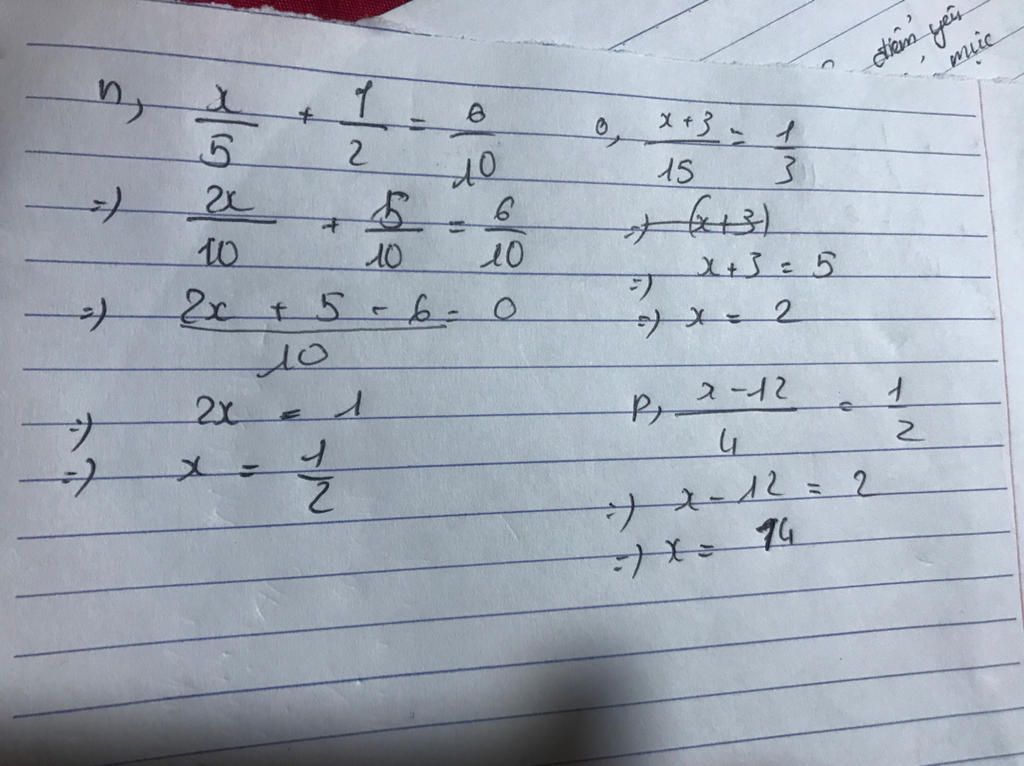 điểm yếu
mục
n, x/5 + 1/2 = 6/10
=) 2x/10 + 5/10 = 6/10
=) (2x + 5 - 6)/10 = 0
=) 2x = 1
=) x = 1/2
o, (x+3)/15 = 1/3
=) (x+3)
=) x+3 = 5
=) x = 2
p, (x-12)/4 = 1/2
=) x-12 = 2
=) x = 14